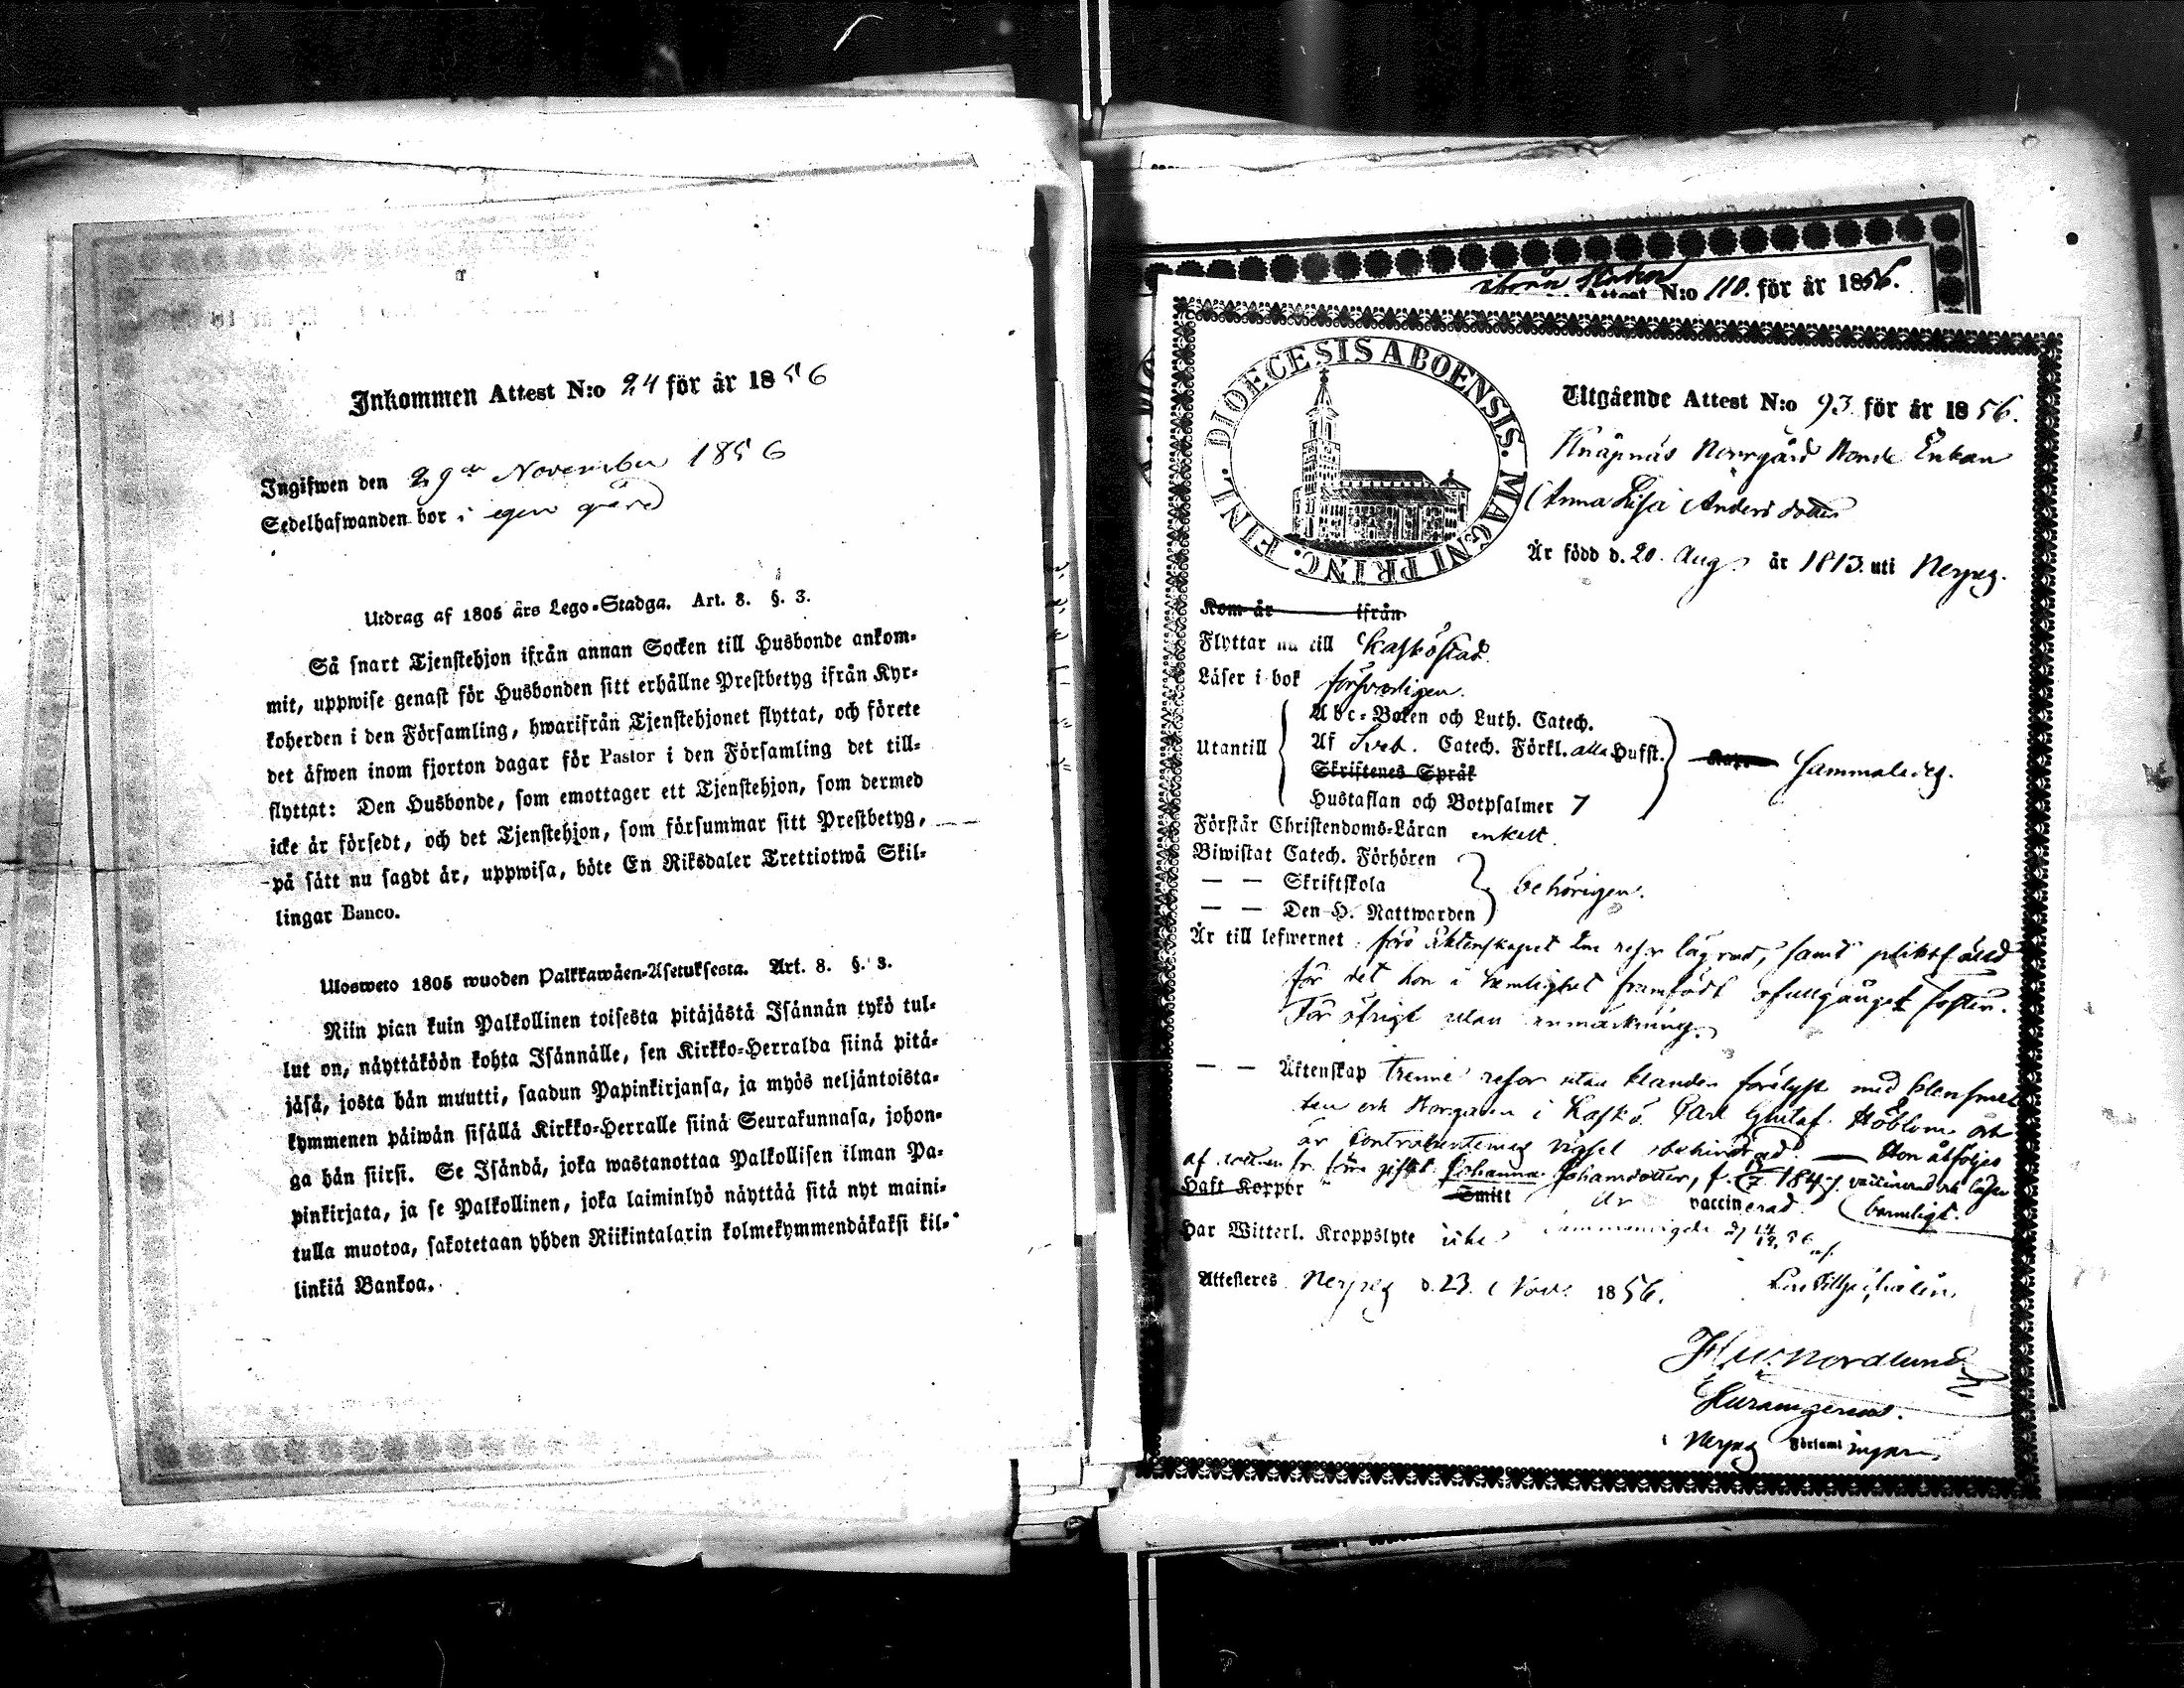 Inkommen Attest N:o 24 för år 1856
Ingifwen den 29de November 1856
Sedelhafwanden bor i egen gård
Utdrag af 1805 års Lego-Stadga. Art. 8. §. 3.
Så snart Tjenstehjon ifrån annan Socken till Husbonde ankom-
mit, uppwise genast för Husbonden sitt erhållne Prestbetyg ifrån Kyr-
koherden i den Församling, hwarifrån Tjenstehjonet flyttat, och förete
det äfwen inom fjorton dagar för Pastor i den Församling det till-
flyttat: Den Husbonde, som emottager ett Tjenstehjon, som dermed
icke är försedt, och det Tjenstehjon, som försummar sitt Prestbetyg,
på sätt nu sagdt är, uppwisa, böte En Riksdaler Trettiotwå Skil-
lingar Banco.
Ulosweto 1805 wuoden Palkkawäen-Asetuksesta. Art. 8. §. 3.
Niin pian kuin Palkollinen toisesta pitäjästä Isännän tykö tul-
lut on, näyttäköön kohta Isännälle, sen Kirkko-Herralda siinä pitä-
jäsä, josta hän muutti, saadun Papinkirjansa, ja myös neljäntoista-
kymmenen päiwän sisällä Kirkko-Herralle siinä Seurakunnasa, johon-
ga hän siirsi. Se Isändä, joka wastanottaa Palkollisen ilman Pa-
pinkirjata, ja se Palkollinen, joka laiminlyö näyttää sitä nyt maini-
tulla muotoa, sakotetaan yhden Riikintalarin kolmekymmendäkaksi kil-
linkiä Bankoa.
Attest N:o 110. för år 1856.
DIOECESIS ABOENSIS. MAGNI PRINC. FINL.
Utgående Attest N:o 93 för år 1856.
Knäpnäs Norrgård Bonde Enkan
Anna Lisa Anders dotter
Är född d. 20. Aug. år 1813. uti Nerpes.
Kom år ifrån
Flyttar nu till Kaskö stad.
Läser i bok försvarligen.
Abc-Boken och Luth. Catech.
Utantill Af Sveb. Catech. Förkl. alla Hufst. Sammaledes.
Skriftenes Språk
Hustaflan och Botpsalmer 7
Förstår Christendoms-Läran enkelt.
Biwistat Catech. Förhören
— — Skriftskola behörigen.
— — Den H. Nattwarden
Är till lefwernet före äktenskapet en resa lägrad, samt pliktfälld
för det hon i hemlighet framfödt ofullgånget foster.
För öfrigt utan anmärkning.
— — Äktenskap trenne resor utan klander förelyst med
och Borgaren i Kaskö Carl Gustaf och
är vigsel obehindrad. — Hon åtföljes
af dotter fr. förra giftet Johanna Johansdotter, f. 1847. vaccinerad och läser
Haft Koppor Smitt är vaccinerad. barnsligt.
Har Witterl. Kroppslyte icke. Sammanvigde af
Attesteres Nerpes d. 23. Nov. 1856.
Nordlund
i Nerpes Församlingar.